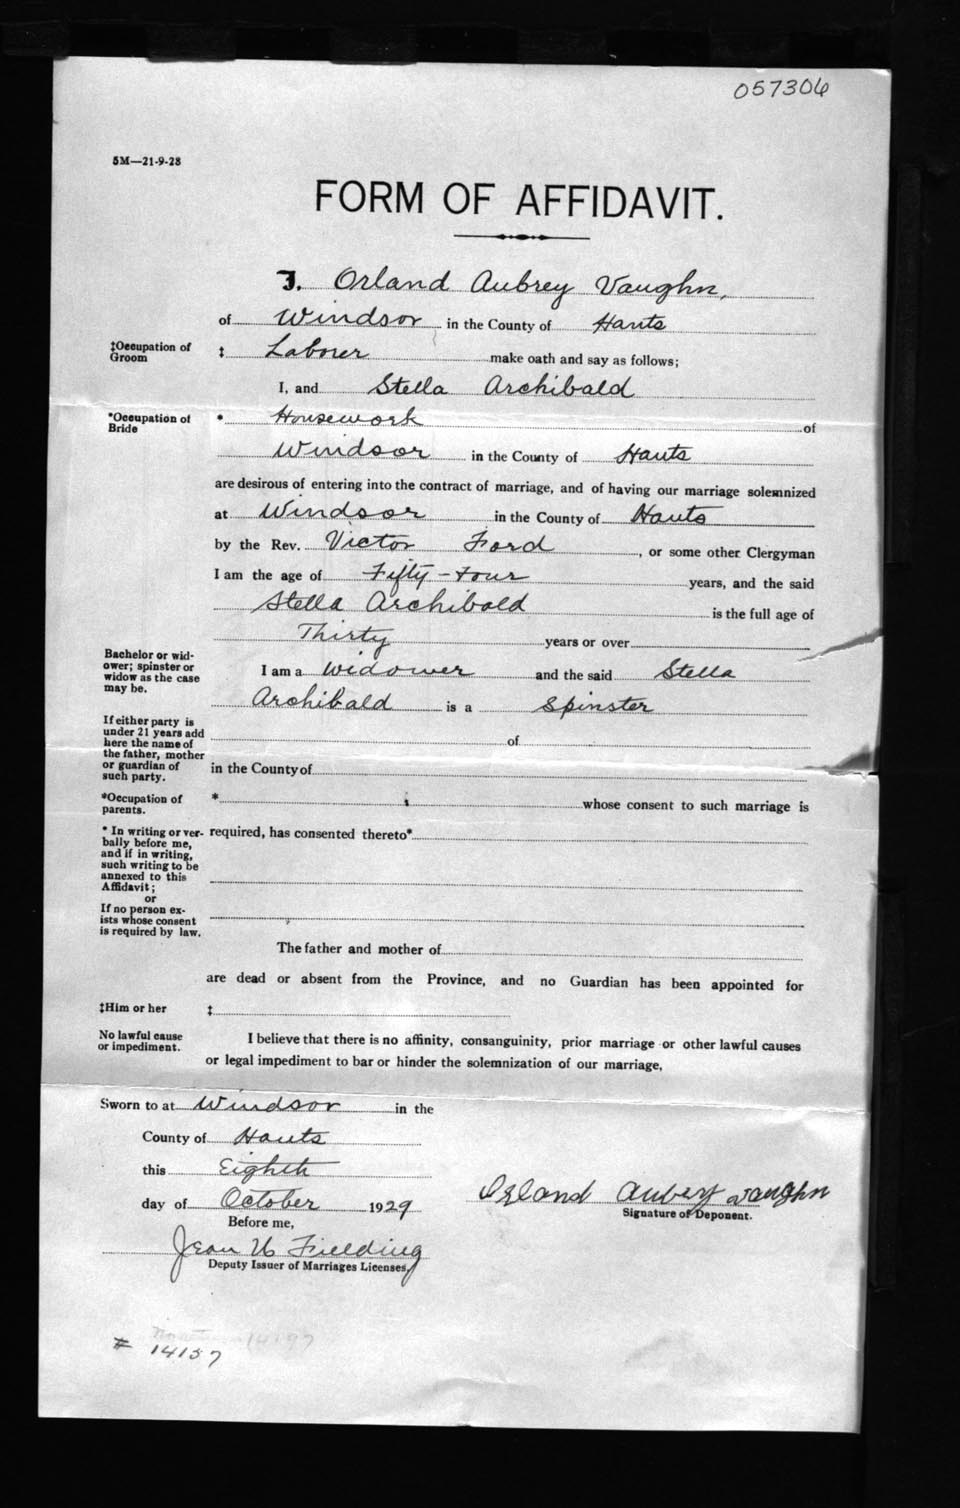 057306
5M—21-9-28
FORM OF AFFIDAVIT.
I, Orland Aubrey Vaughn,
of Windsor in the County of Hants
‡Occupation of Groom ‡ Laborer make oath and say as follows;
I, and Stella Archibald
*Occupation of Bride * Housework of
Windsor in the County of Hants
are desirous of entering into the contract of marriage, and of having our marriage solemnized
at Windsor in the County of Hants
by the Rev. Victor Ford, or some other Clergyman
I am the age of Fifty-Four years, and the said
Stella Archibald is the full age of
Thirty years or over
Bachelor or wid-
ower; spinster or
widow as the case
may be.
I am a Widower and the said Stella
Archibald is a Spinster
If either party is
under 21 years add
here the name of
the father, mother
or guardian of
such party.
of
in the County of
*Occupation of
parents.
* whose consent to such marriage is
* In writing or ver-
bally before me,
and if in writing,
such writing to be
annexed to this
Affidavit;
or
If no person ex-
ists whose consent
is required by law.
required, has consented thereto*
The father and mother of
are dead or absent from the Province, and no Guardian has been appointed for
‡Him or her ‡
No lawful cause
or impediment.
I believe that there is no affinity, consanguinity, prior marriage or other lawful causes
or legal impediment to bar or hinder the solemnization of our marriage,
Sworn to at Windsor in the
County of Hants
this Eighth
day of October 1929
Before me,
Orland Aubery Vaughn
Signature of Deponent.
Fielding
Deputy Issuer of Marriages Licenses,
14197
# 14137